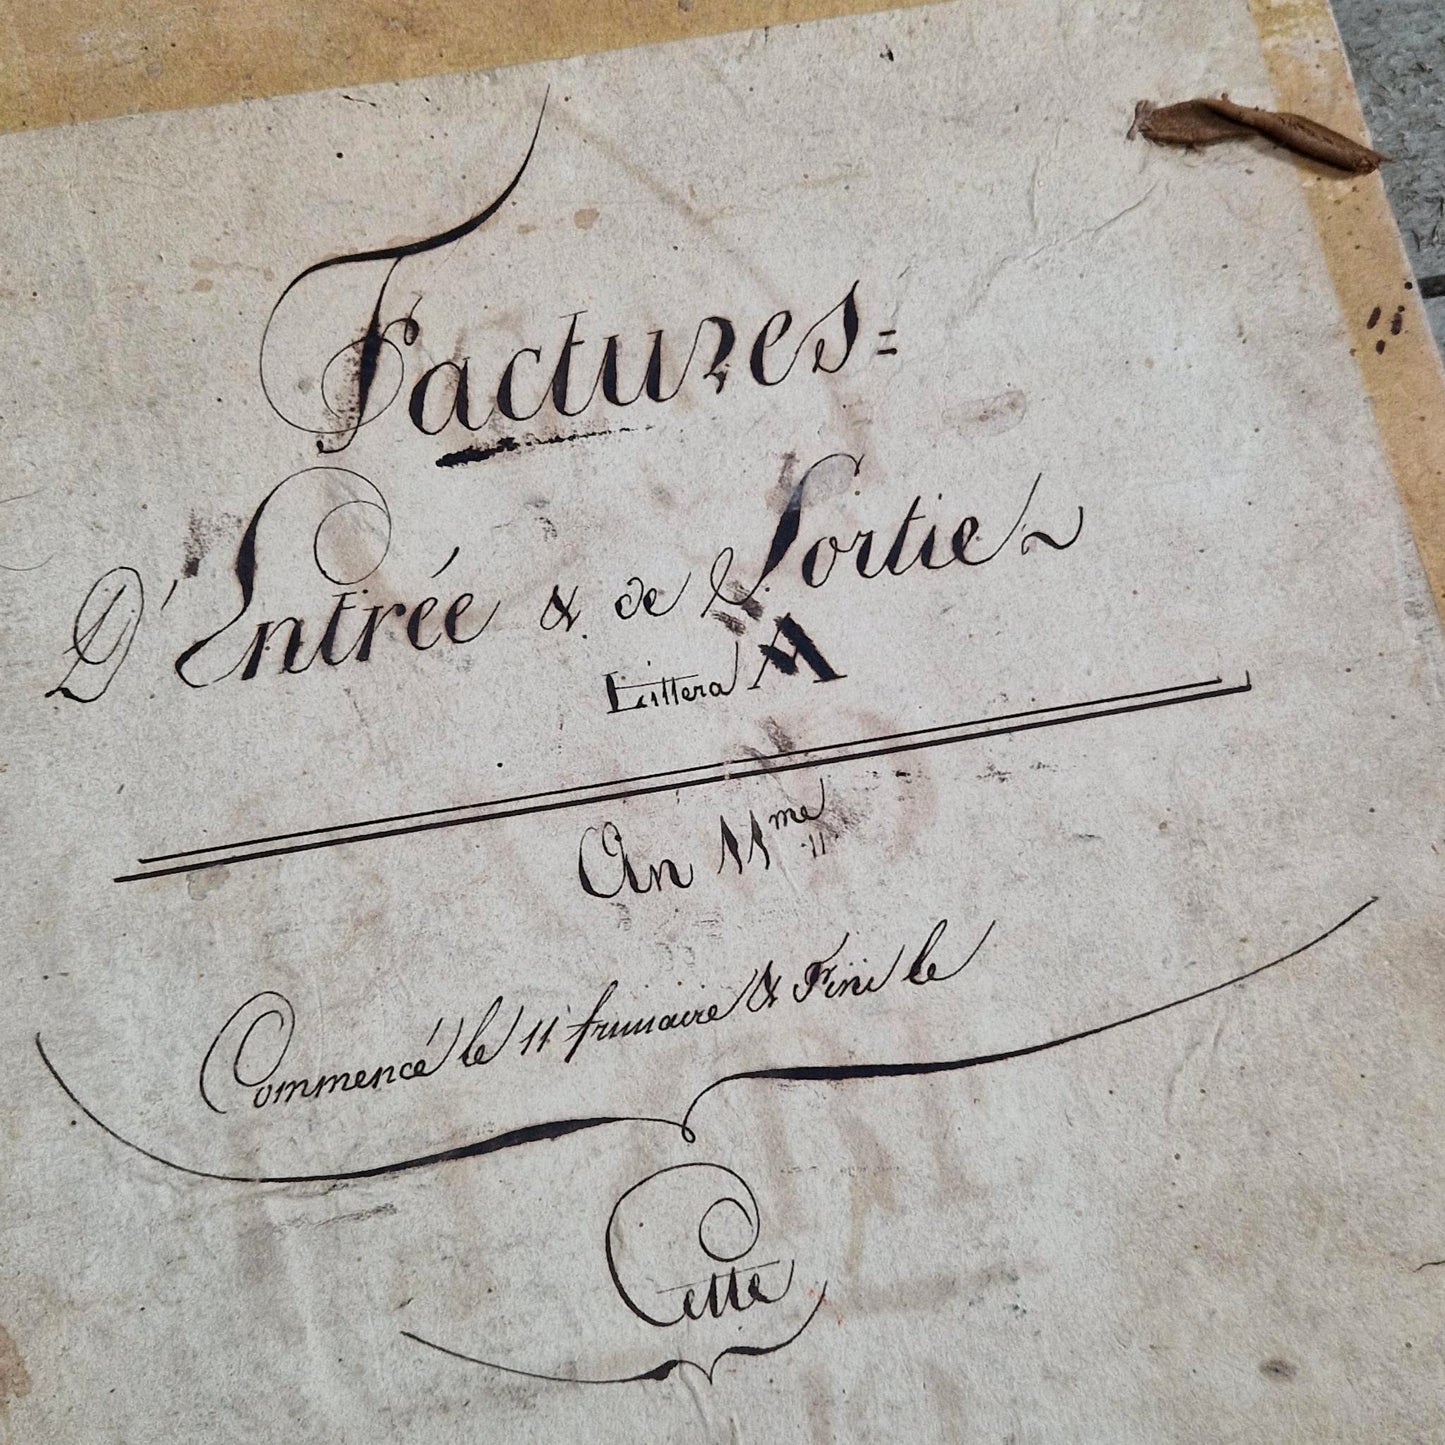 Factures=
D'Entrée & de Sortie
Littera A
An 11me
Commencé le 11 frimaire & Fini le
Cette